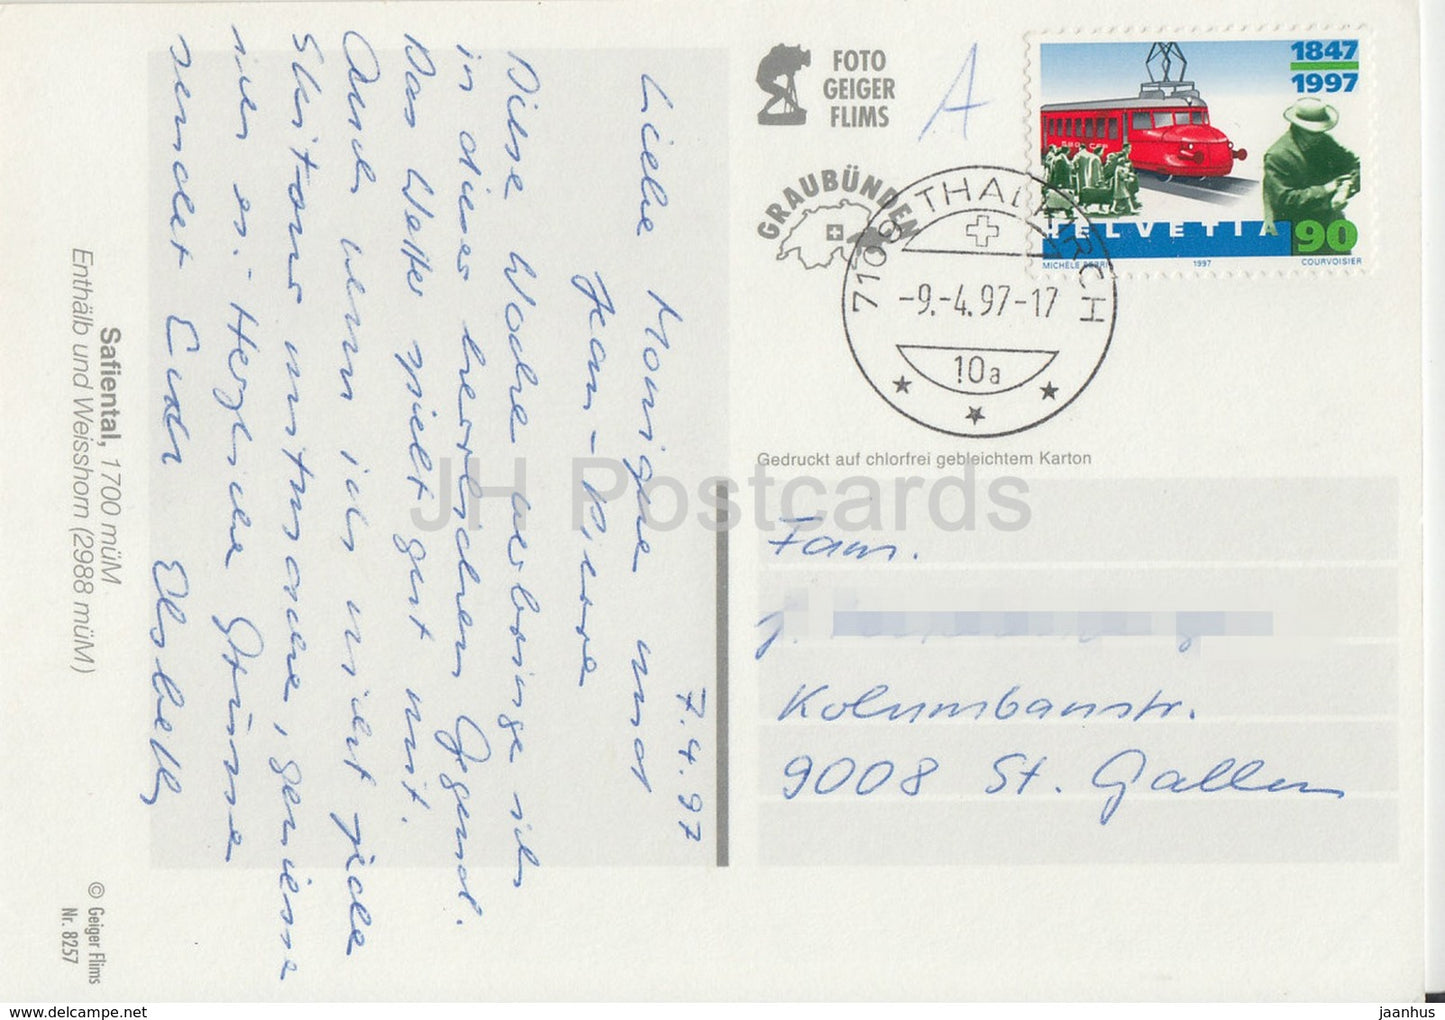 7.4.97
Liebe Monique und
Jean-Pierre
Diese Woche verbringe ich
in dieser herrlichen Gegend.
Das Wetter spielt gut mit.
Auch wenn ich nicht jede
Skitour mitmache, geniesse
ich es. Herzliche Grüsse
sendet Euch Elsbeth
Safiental, 1700 müM
Enthälb und Weisshorn (2988 müM)
© Geiger Flims
Nr. 8257
FOTO
GEIGER
FLIMS
A
GRAUBÜNDEN
1847
1997
HELVETIA 90
1997
COURVOISIER
7109 THALKIRCH
-9.-4.97-17
10a
Gedruckt auf chlorfrei gebleichtem Karton
JH Postcards
Fam.
J.
Kolumbanstr.
9008 St. Gallen
jaanhus - https://www.delcampe.net